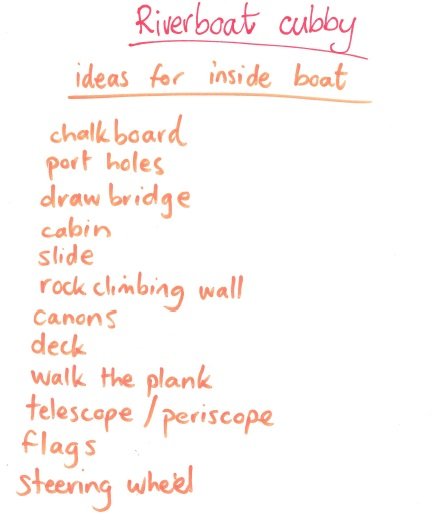 Riverboat cubby
ideas for inside boat
chalkboard
port holes
drawbridge
cabin
slide
rock climbing wall
canons
deck
walk the plank
telescope / periscope
flags
steering wheel